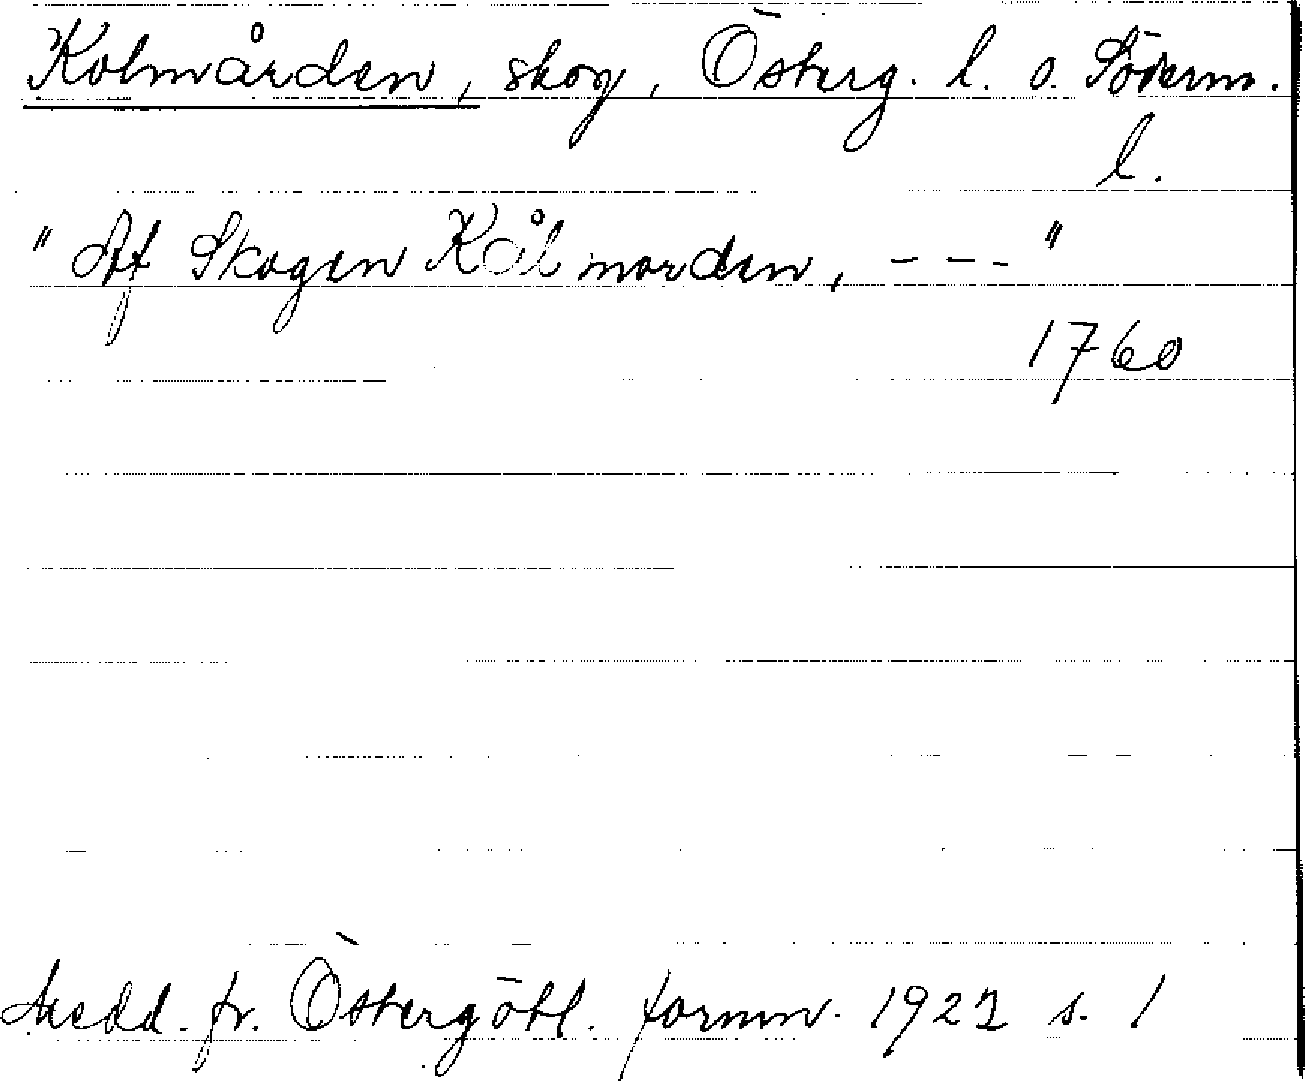 Kolmården, skog, Österg. l. o. Söderm.
l.
" Af Skogen Kålmorden, - - - "
1760
Medd. fr. Östergötl. fornm. 1922 s. 1